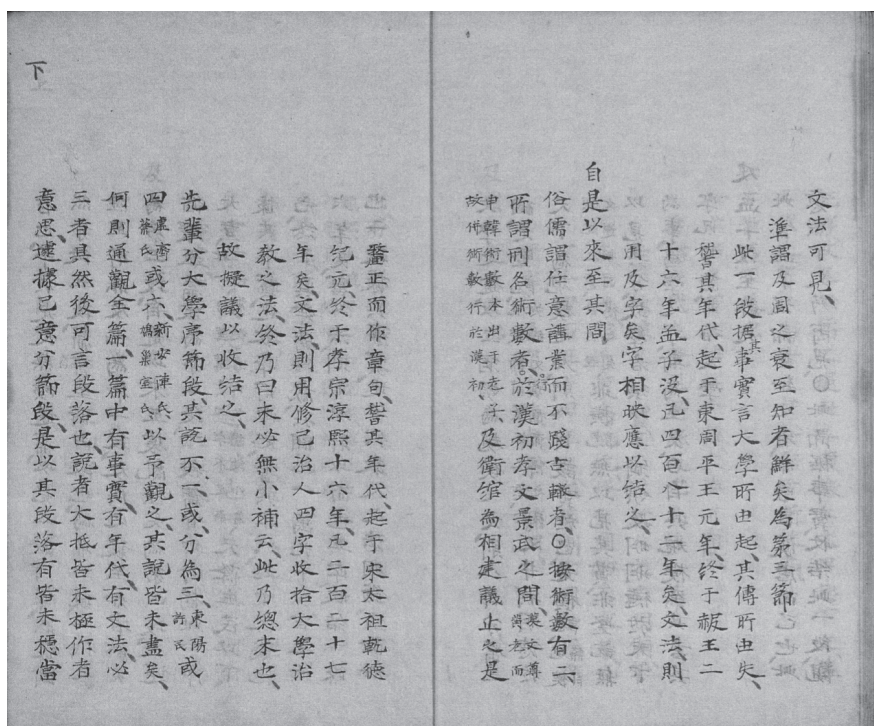 文法可見、
準謂及周之衰至知者鮮矣為第三節
此一段据其事實言大學所由起、其傳所由失、
誓其年代、起于東周平王元年、終于赧王二
十六年孟子沒、凡四百八十二年矣文法、則
用及字矣字相映應以結之、
自是以來至其間
俗儒謂仕意講業而不踐古轍者、〇按術數有二
所謂刑名術數者、行於漢初孝文景武之間、漢文尊 黃老而
申韓術數本出于老子、及衛綰為相建議止之是
故併術數行於漢初、
下
也釐正而作章句、誓其年代、起于宋太祖乾德
紀元、終于孝宗淳熙十六年、凡二百二十七
年矣、文法、則用修己治人四字收拾大學治
教之法、終乃曰未必無小補云、此乃總末也、
故擬議以收結之、
先輩分大學序節段、其說不一、或分為三、東陽 許氏或
四虛齋 蔡氏或六、新安陳氏 鳩巢室氏以予觀之、其說皆未盡矣、
何則通觀全篇、一篇中有事實、有年代、有文法、必
三者具然後可言段落也、說者大抵皆未極作者
意思、遽據己意分節段、是以其段落有皆未穩當